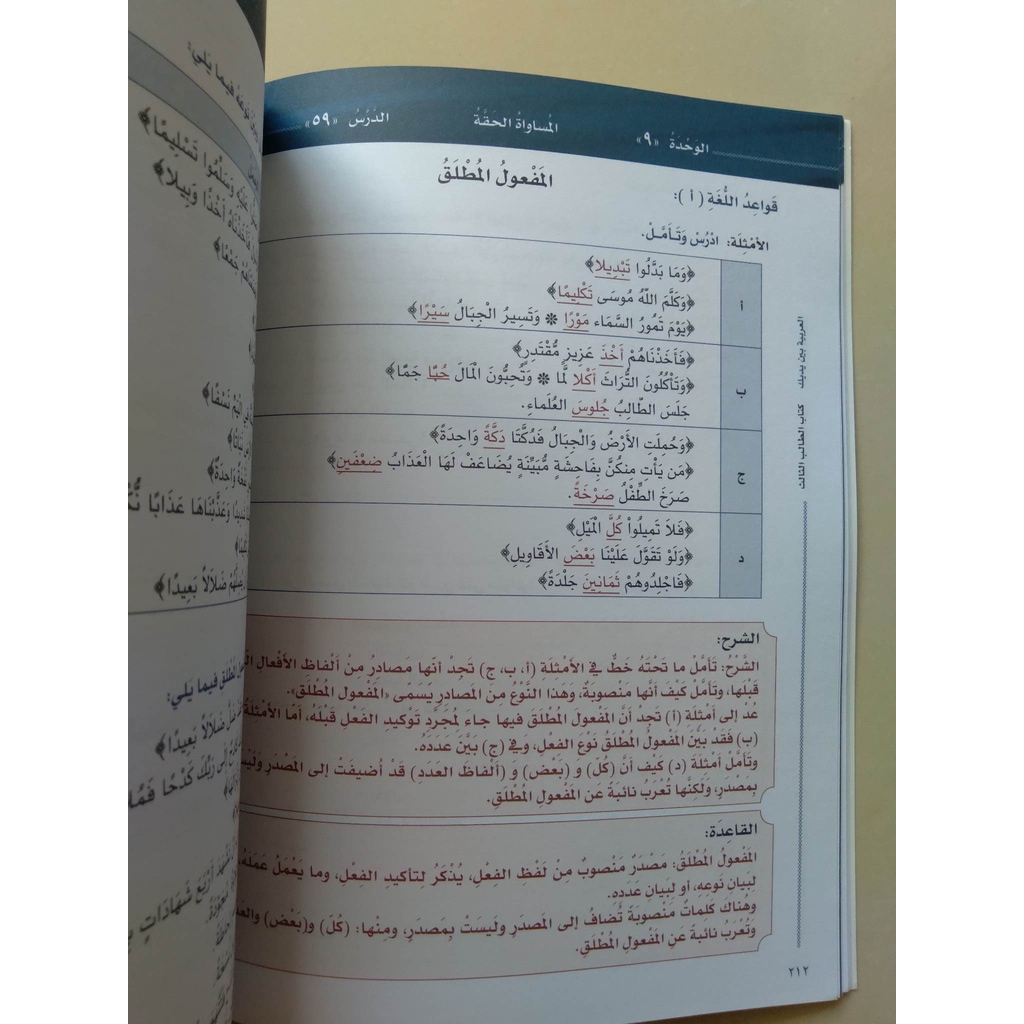 الوَحْدَةُ «٩» المُساواةُ الحَقَّةُ الدَّرْسُ «٥٩»
قَواعِدُ اللُّغَةِ ( أ ):
المَفْعولُ المُطْلَقُ
الأمْثِلَة: ادْرُسْ وَتَأمَّلْ.
أ
﴿وَمَا بَدَّلُوا تَبْدِيلا﴾
﴿وَكَلَّمَ اللّهُ مُوسَى تَكْلِيمًا﴾
﴿يَوْمَ تَمُورُ السَّمَاء مَوْرًا * وَتَسِيرُ الْجِبَالُ سَيْرًا﴾
ب
﴿فَأَخَذْنَاهُمْ أَخْذَ عَزِيزٍ مُّقْتَدِرٍ﴾
﴿وَتَأْكُلُونَ التُّرَاثَ أَكْلا لَّمًّا * وَتُحِبُّونَ الْمَالَ حُبًّا جَمًّا﴾
جَلَسَ الطّالِبُ جُلوسَ العُلَماءِ.
ج
﴿وَحُمِلَتِ الأَرْضُ وَالْجِبَالُ فَدُكَّتَا دَكَّةً وَاحِدَةً﴾
﴿مَن يَأْتِ مِنكُنَّ بِفَاحِشَةٍ مُّبَيِّنَةٍ يُضَاعَفْ لَهَا الْعَذَابُ ضِعْفَيْنِ﴾
صَرَخَ الطِّفْلُ صَرْخَةً.
د
﴿فَلاَ تَمِيلُواْ كُلَّ الْمَيْلِ﴾
﴿وَلَوْ تَقَوَّلَ عَلَيْنَا بَعْضَ الأَقَاوِيلِ﴾
﴿فَاجْلِدُوهُمْ ثَمَانِينَ جَلْدَةً﴾
الشرح:
الشَّرْحُ: تَأمَّلْ ما تَحْتَهُ خَطٌّ في الأمْثِلَةِ (أ، ب، ج) تَجِدْ أنَّها مَصادِرُ مِنْ ألْفاظِ الأفْعالِ
قَبْلَها، وتَأمَّلْ كَيْفَ أنَّها مَنْصوبَةٌ، وَهَذا النَّوْعُ مِنَ المَصادِرِ يُسَمّى «المَفْعول المُطْلَق».
عُدْ إلى أمْثِلَةِ (أ) تَجِدْ أنَّ المَفْعولَ المُطْلَقَ فيها جاءَ لمُجَرَّدِ تَوْكيدِ الفِعْلِ قَبْلَهُ، أمّا الأمْثِلَةُ
(ب) فَقَدْ بَيَّنَ المَفْعولُ المُطْلَقُ نَوْعَ الفِعْلِ، وفي (ج) بَيَّنَ عَدَدَهُ.
وتَأمَّلْ أمْثِلَةَ (د) كَيْفَ أنَّ (كُلّ) وَ (بَعْض) وَ (ألْفاظَ العَدَدِ) قَدْ أضيفَتْ إلى المَصْدَرِ وَلَيْسَتْ
بِمَصْدَرٍ، ولَكِنَّها تُعْرَبُ نائبَةً عَنِ المَفْعولِ المُطْلَقِ.
القاعِدَة:
المَفْعولُ المُطْلَقُ: مَصْدَرٌ مَنْصوبٌ مِنْ لَفْظِ الفِعْلِ، يُذْكَرُ لتأكيدِ الفِعْلِ، وما يَعْمَلُ عَمَلَهُ،
لِبَيانِ نَوعِهِ، أو لِبيانِ عَدَدِه.
وهُناكَ كَلِماتٌ مَنْصوبَةٌ تُضافُ إلى المَصدَرِ وليسَتْ بِمَصْدَرٍ، ومِنْها: (كُلّ) و(بَعْض)
وتُعْرَبُ نائبَةً عَنِ المَفْعولِ المُطْلَقِ.
العربية بين يديك كتاب الطالب الثالث
٢١٢
نَوْعَهُ فيما يَلي:
وَسَلِّمُوا تَسْلِيمًا﴾
فَأَخَذْنَاهُ أَخْذًا وَبِيلا﴾
جَمْعًا﴾
فِي الْيَمِّ نَسْفًا﴾
وَاحِدَةٌ﴾
وَعَذَّبْنَاهَا عَذَابًا
ضَلاَلاً بَعِيدًا﴾
المُطْلَقِ فيما يَلي:
ضَلَّ ضَلاَلاً بَعِيدًا﴾
إِلَى رَبِّكَ كَدْحًا
أَرْبَعَ شَهَادَاتٍ